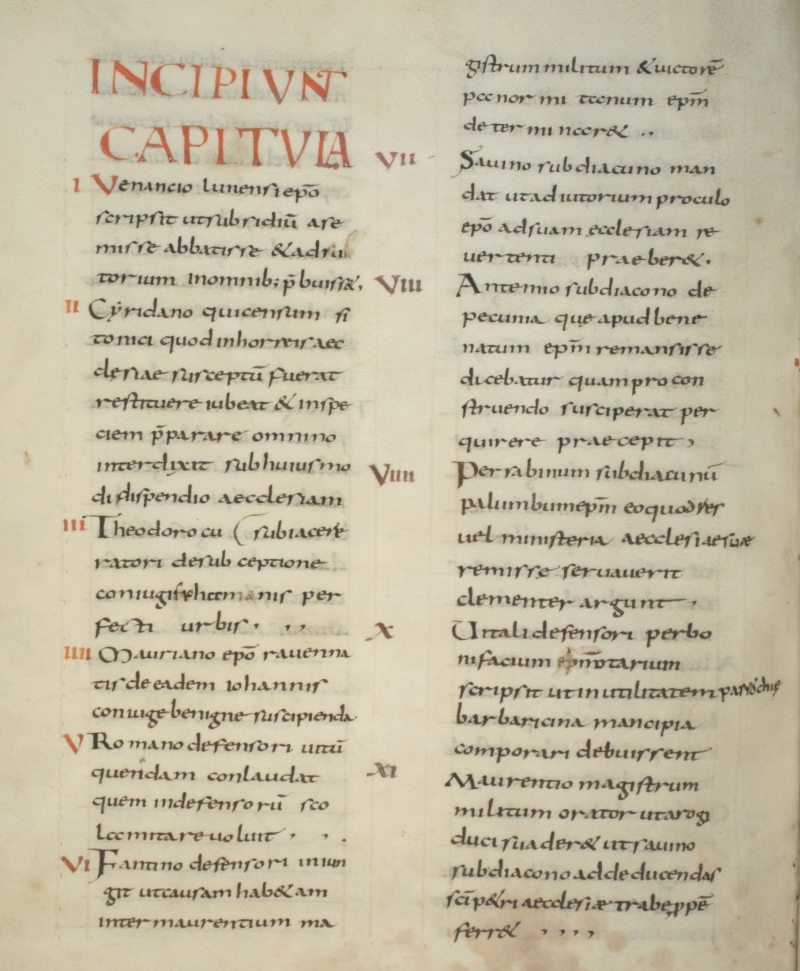 INCIPIUNT
CAPITULA
I Venancio lunensi ep̄o
scripsit ut subridiū arse
misse abbatisse & adiu
torium inomnib; p̄buiss&,
II Cyridano qui censum si
tonici quod inhorreis aec
clesiae susceptū fuerat
restituere iubeat & inspe
ciem p̄parare omnino
interdixit sub huiusmo
di dispendio aecclesiam
III Theodoro cu subiacere
ratori desub ceptione
coniugis hanis per
fecti urbis, , ,
IIII Mauriano ep̄o rauenna
tis de eadem iohannis
coniuge benigne suscipienda
V Romano defensori uitū
quendam conlaudat
quem indefensorū sco
la comitare uoluit , , .
VI Fantino defensori iniun
git ut causam hab&am
inter maurentium ma
gistrum militum & uictorē
panormitanum ep̄m
determinar& ..
VII Sauino subdiacuno man
dat ut adiutorium proculo
ep̄o adsuam ecclesiam re
uertenti praeber&.
VIII Antemio subdiacono de
pecunia que apud bene
natum ep̄m remansisse
dicebatur quam pro con
struendo susciperat per
quirere praecepit ,
VIIII Per rabinum subdiacunū
palumbum ep̄m eo quod res
uel ministeria aecclesiae suae
remisse seruauerit
clementer argunt ,
X Uitali defensori per bo
nifacium notarium
scripsit ut in utilitatem parrochię
barbaricina mancipia
comporari debuissent
XI Maurentio magistrum
militum orator ut arogi
duci suader& ut sauino
subdiacono ad deducendas
sc̄i p&ri aecclesiæ trabes ppē
ferr& , , , ,